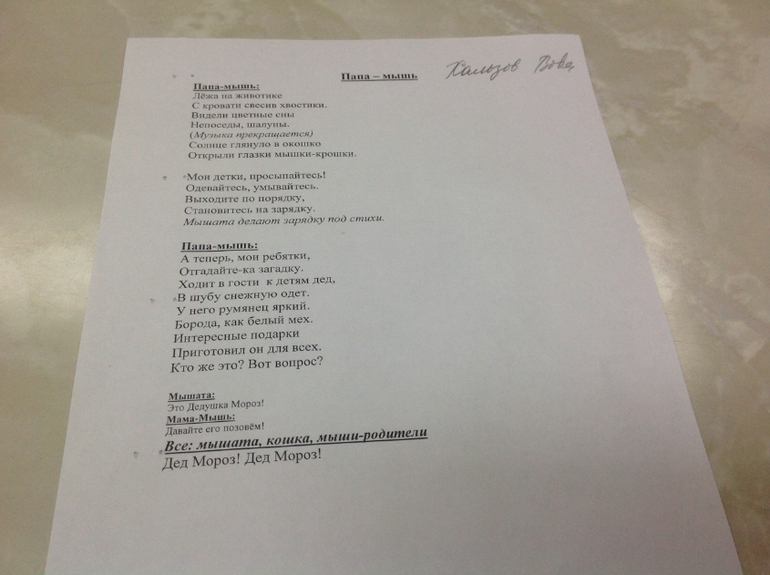 Папа – мышь
Хользов Вова
Папа-мышь:
Лёжа на животике
С кровати свесив хвостики.
Видели цветные сны
Непоседы, шалуны.
(Музыка прекращается)
Солнце глянуло в окошко
Открыли глазки мышки-крошки.
Мои детки, просыпайтесь!
Одевайтесь, умывайтесь.
Выходите по порядку,
Становитесь на зарядку.
Мышата делают зарядку под стихи.
Папа-мышь:
А теперь, мои ребятки,
Отгадайте-ка загадку.
Ходит в гости к детям дед,
В шубу снежную одет.
У него румянец яркий.
Борода, как белый мех.
Интересные подарки
Приготовил он для всех.
Кто же это? Вот вопрос?
Мышата:
Это Дедушка Мороз!
Мама-Мышь:
Давайте его позовём!
Все: мышата, кошка, мыши-родители
Дед Мороз! Дед Мороз!